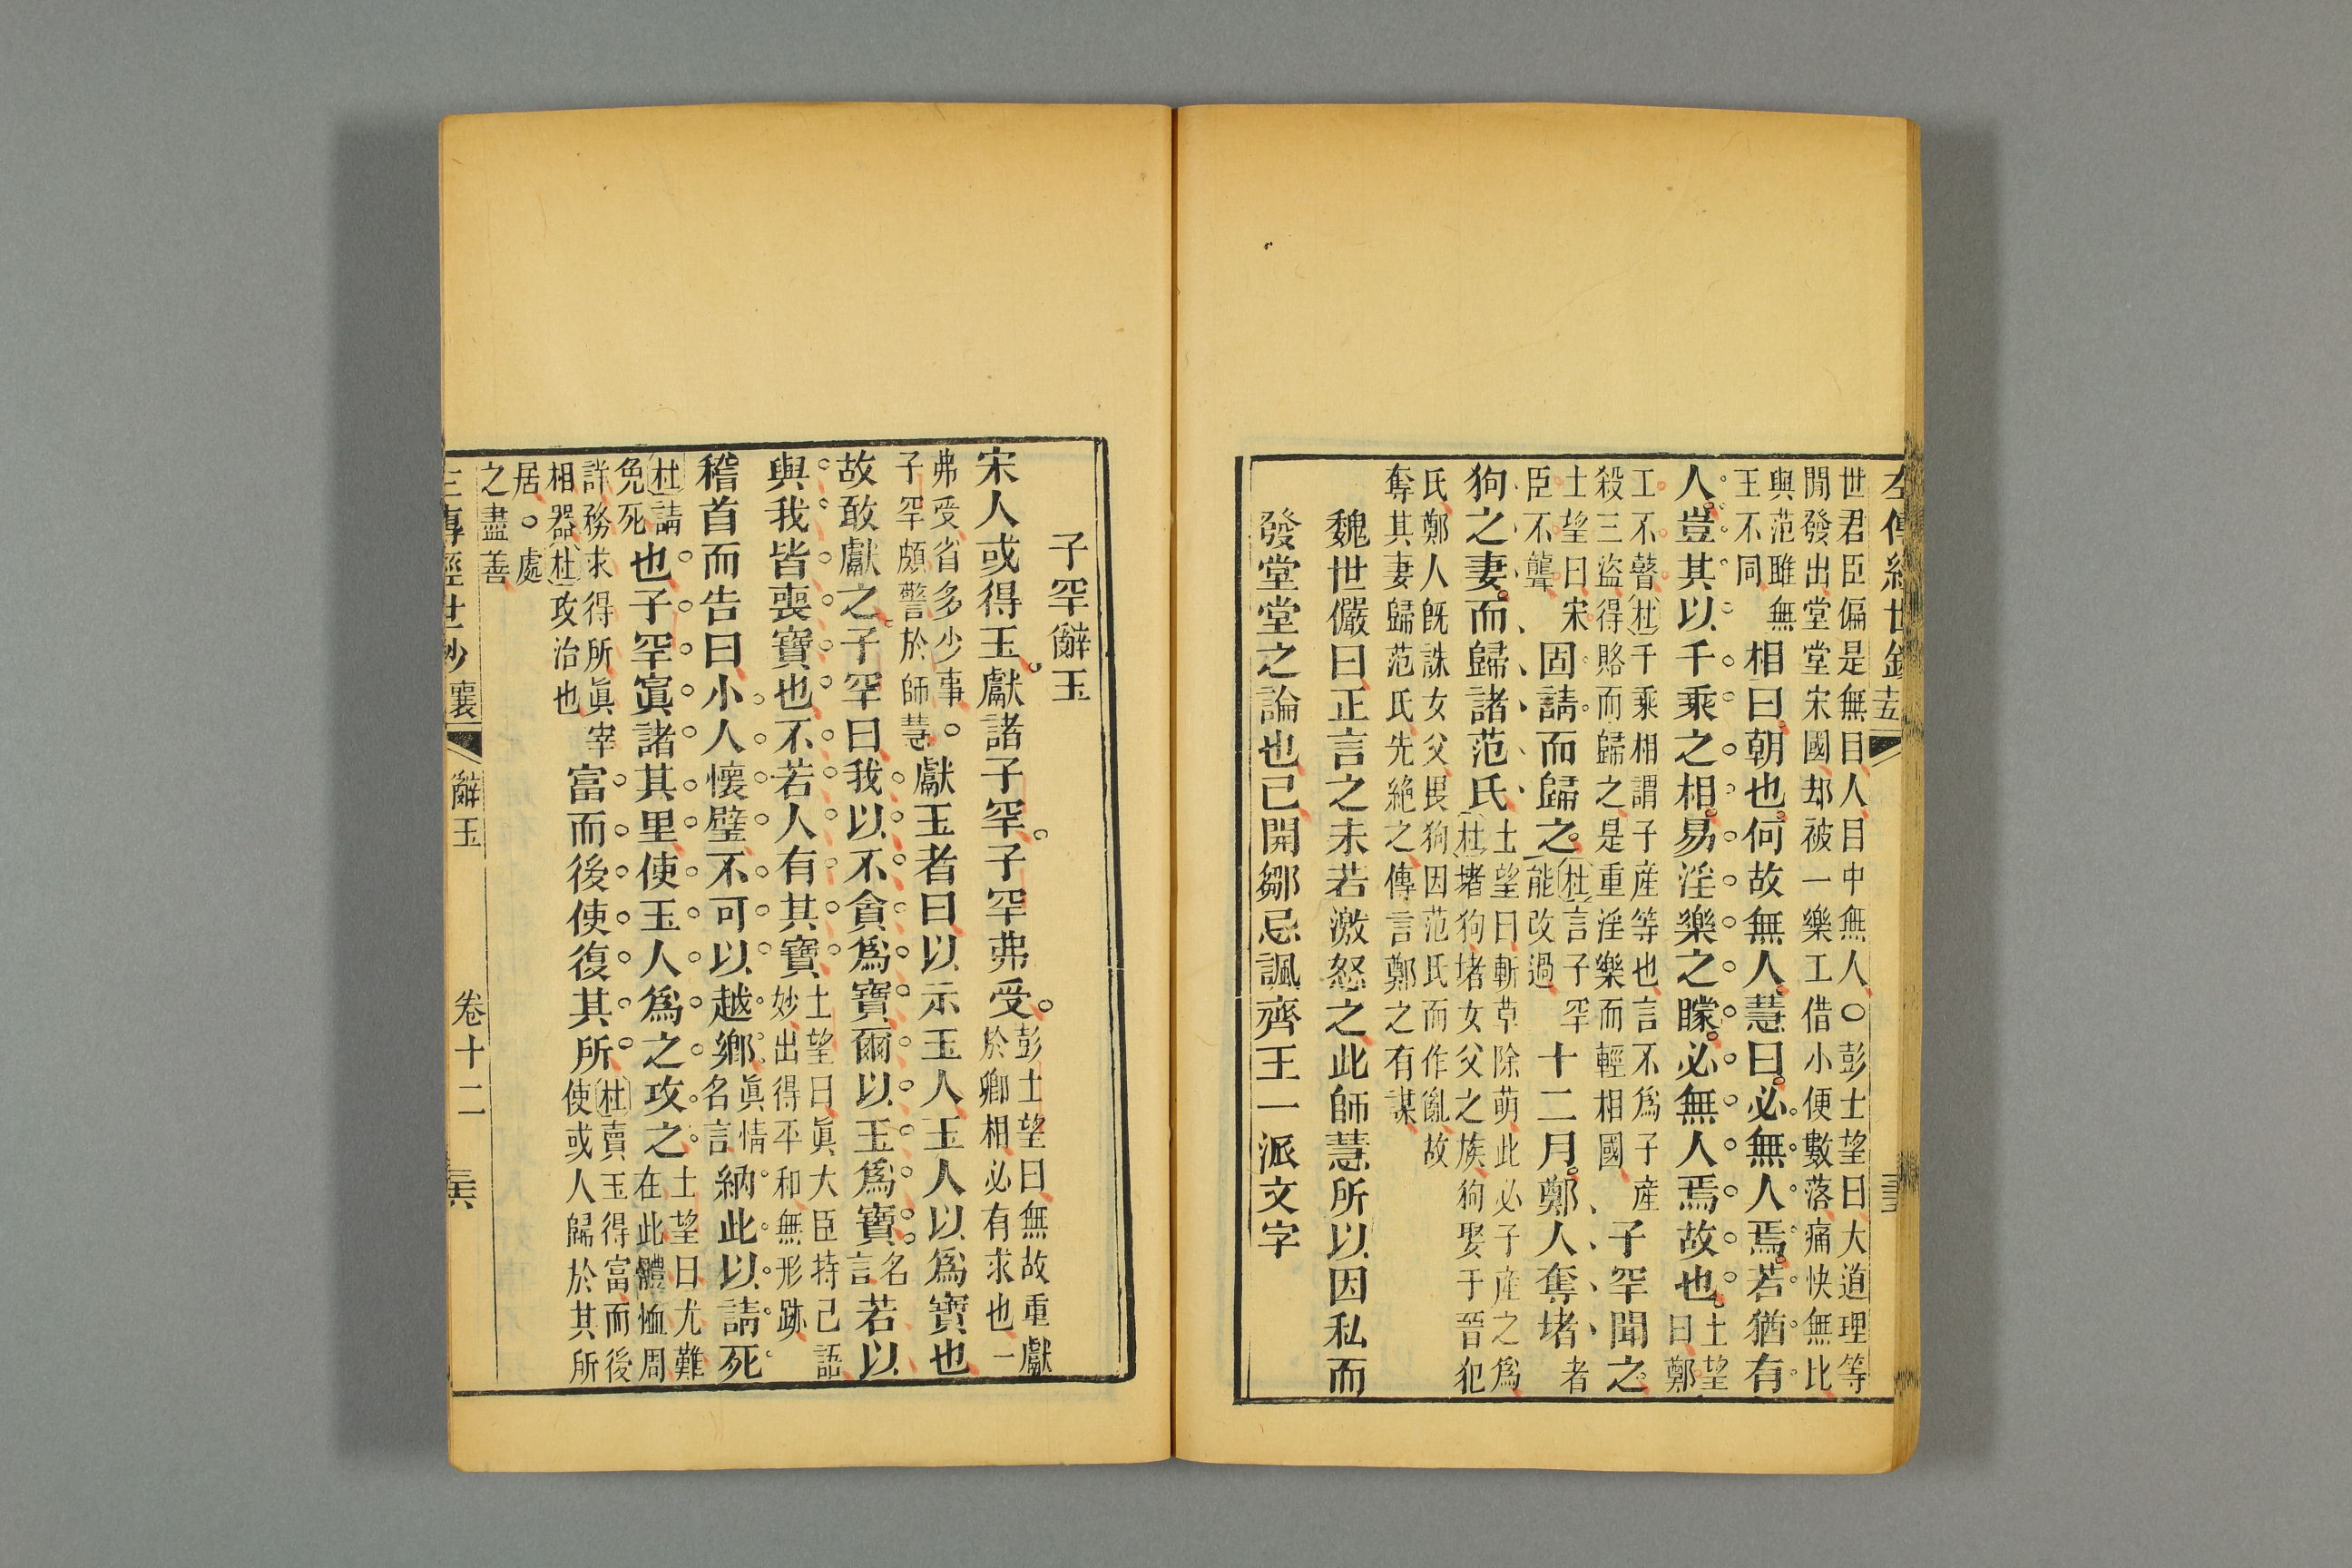 左傳經世鈔
世君臣偏是無目人目中無人〇彭士望曰大道理等
閒發出堂堂宋國却被一樂工借小便數落痛快無比
與范雎無
王不同
相曰朝也何故無人慧曰必無人焉若猶有
人豈其以千乘之相易淫樂之矇必無人焉故也
士望
曰鄭
工不瞽杜千乘相謂子産等也言不爲子産
殺三盜得賂而歸之是重淫樂而輕相國
子罕聞之
士望曰宋
臣不聾
固請而歸之
杜言子罕
能改過
十二月鄭人奪堵
者
狗之妻而歸諸范氏
士望曰斬草除萌此必子産之爲
杜堵狗堵女父之族狗娶于晉犯
氏鄭人旣誅女父畏狗因范氏而作亂故
奪其妻歸范氏先絶之傳言鄭之有謀
魏世儼曰正言之未若激怒之此師慧所以因私而
發堂堂之論也已開鄒忌諷齊王一派文字
子罕辭玉
宋人或得玉獻諸子罕子罕弗受
彭士望曰無故重獻
於卿相必有求也一
弗受省多少事。
子罕頗警於師慧
獻玉者曰以示玉人玉人以爲寶也
故敢獻之子罕曰我以不貪爲寶爾以玉爲寶
名
言
若以
與我皆喪寶也不若人有其寶
士望曰眞大臣持己語
妙出得平和無形跡
稽首而告曰小人懷璧不可以越鄉
眞情
名言
納此以請死
杜請
免死
也子罕寘諸其里使玉人爲之攻之
士望曰尤難
在此體恤周
詳務求得所眞宰
相器杜攻治也
富而後使復其所
杜賣玉得富而後
使或人歸於其所
居。處
之盡善
襄
辭玉
卷十二